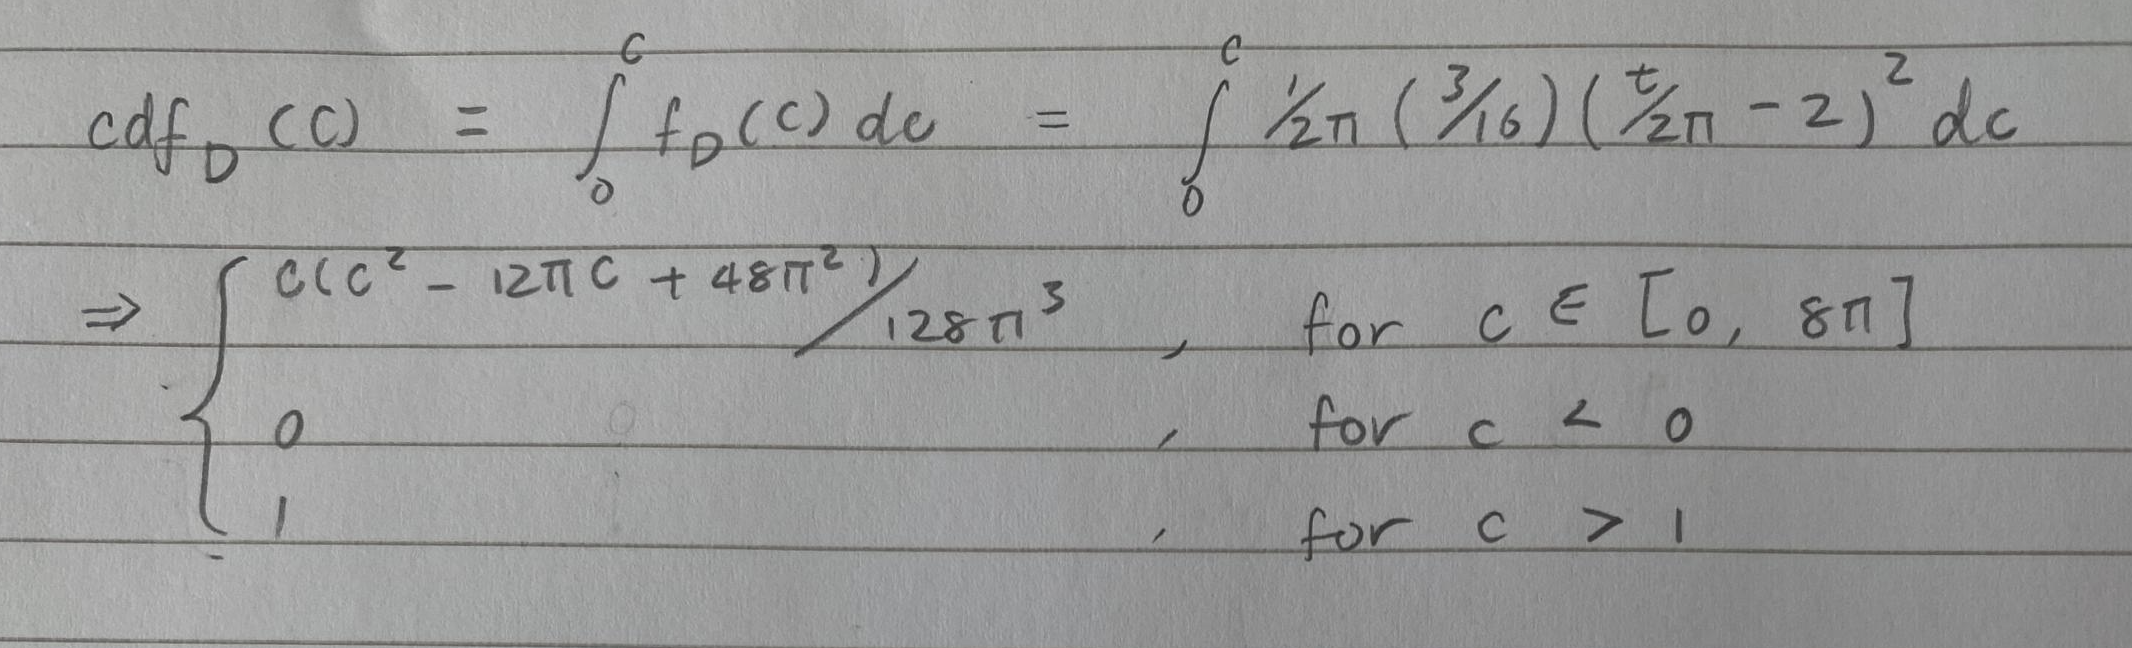 cdf_D (c) = ∫_0^c f_D (c) dc = ∫_0^c 1/2π (3/16) (t/2π - 2)^2 dc
⇒ { c(c^2 - 12πc + 48π^2) / 128π^3 , for c ∈ [0, 8π]
0 , for c < 0
1 , for c > 1